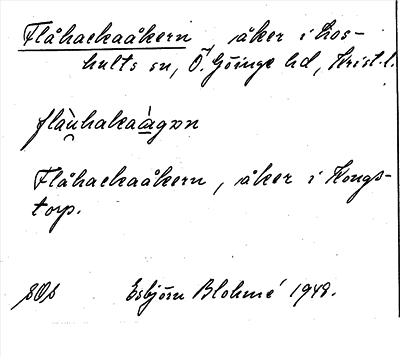 Flåhackaåkern åker i Los-
hults sn, Ö. Göinge hd, Krist. l.
flau̯hakaàgɒn
Flåhackaåkern, åker i Kongs-
torp.
Esbjörn Blohmé 1948.